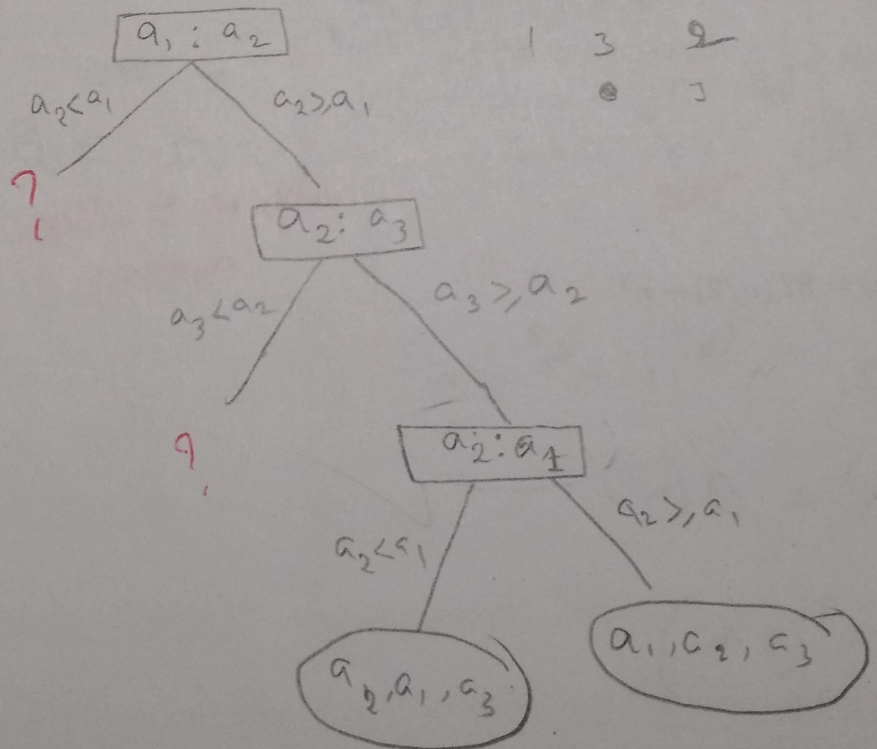 a₁ : a₂
1 3 2
3
a₂<a₁
a₂≥a₁
?
a₂: a₃
a₃<a₂
a₃≥a₂
?
a₂:a₁
a₂<a₁
a₂≥a₁
a₂,a₁,a₃
a₁,a₂,a₃